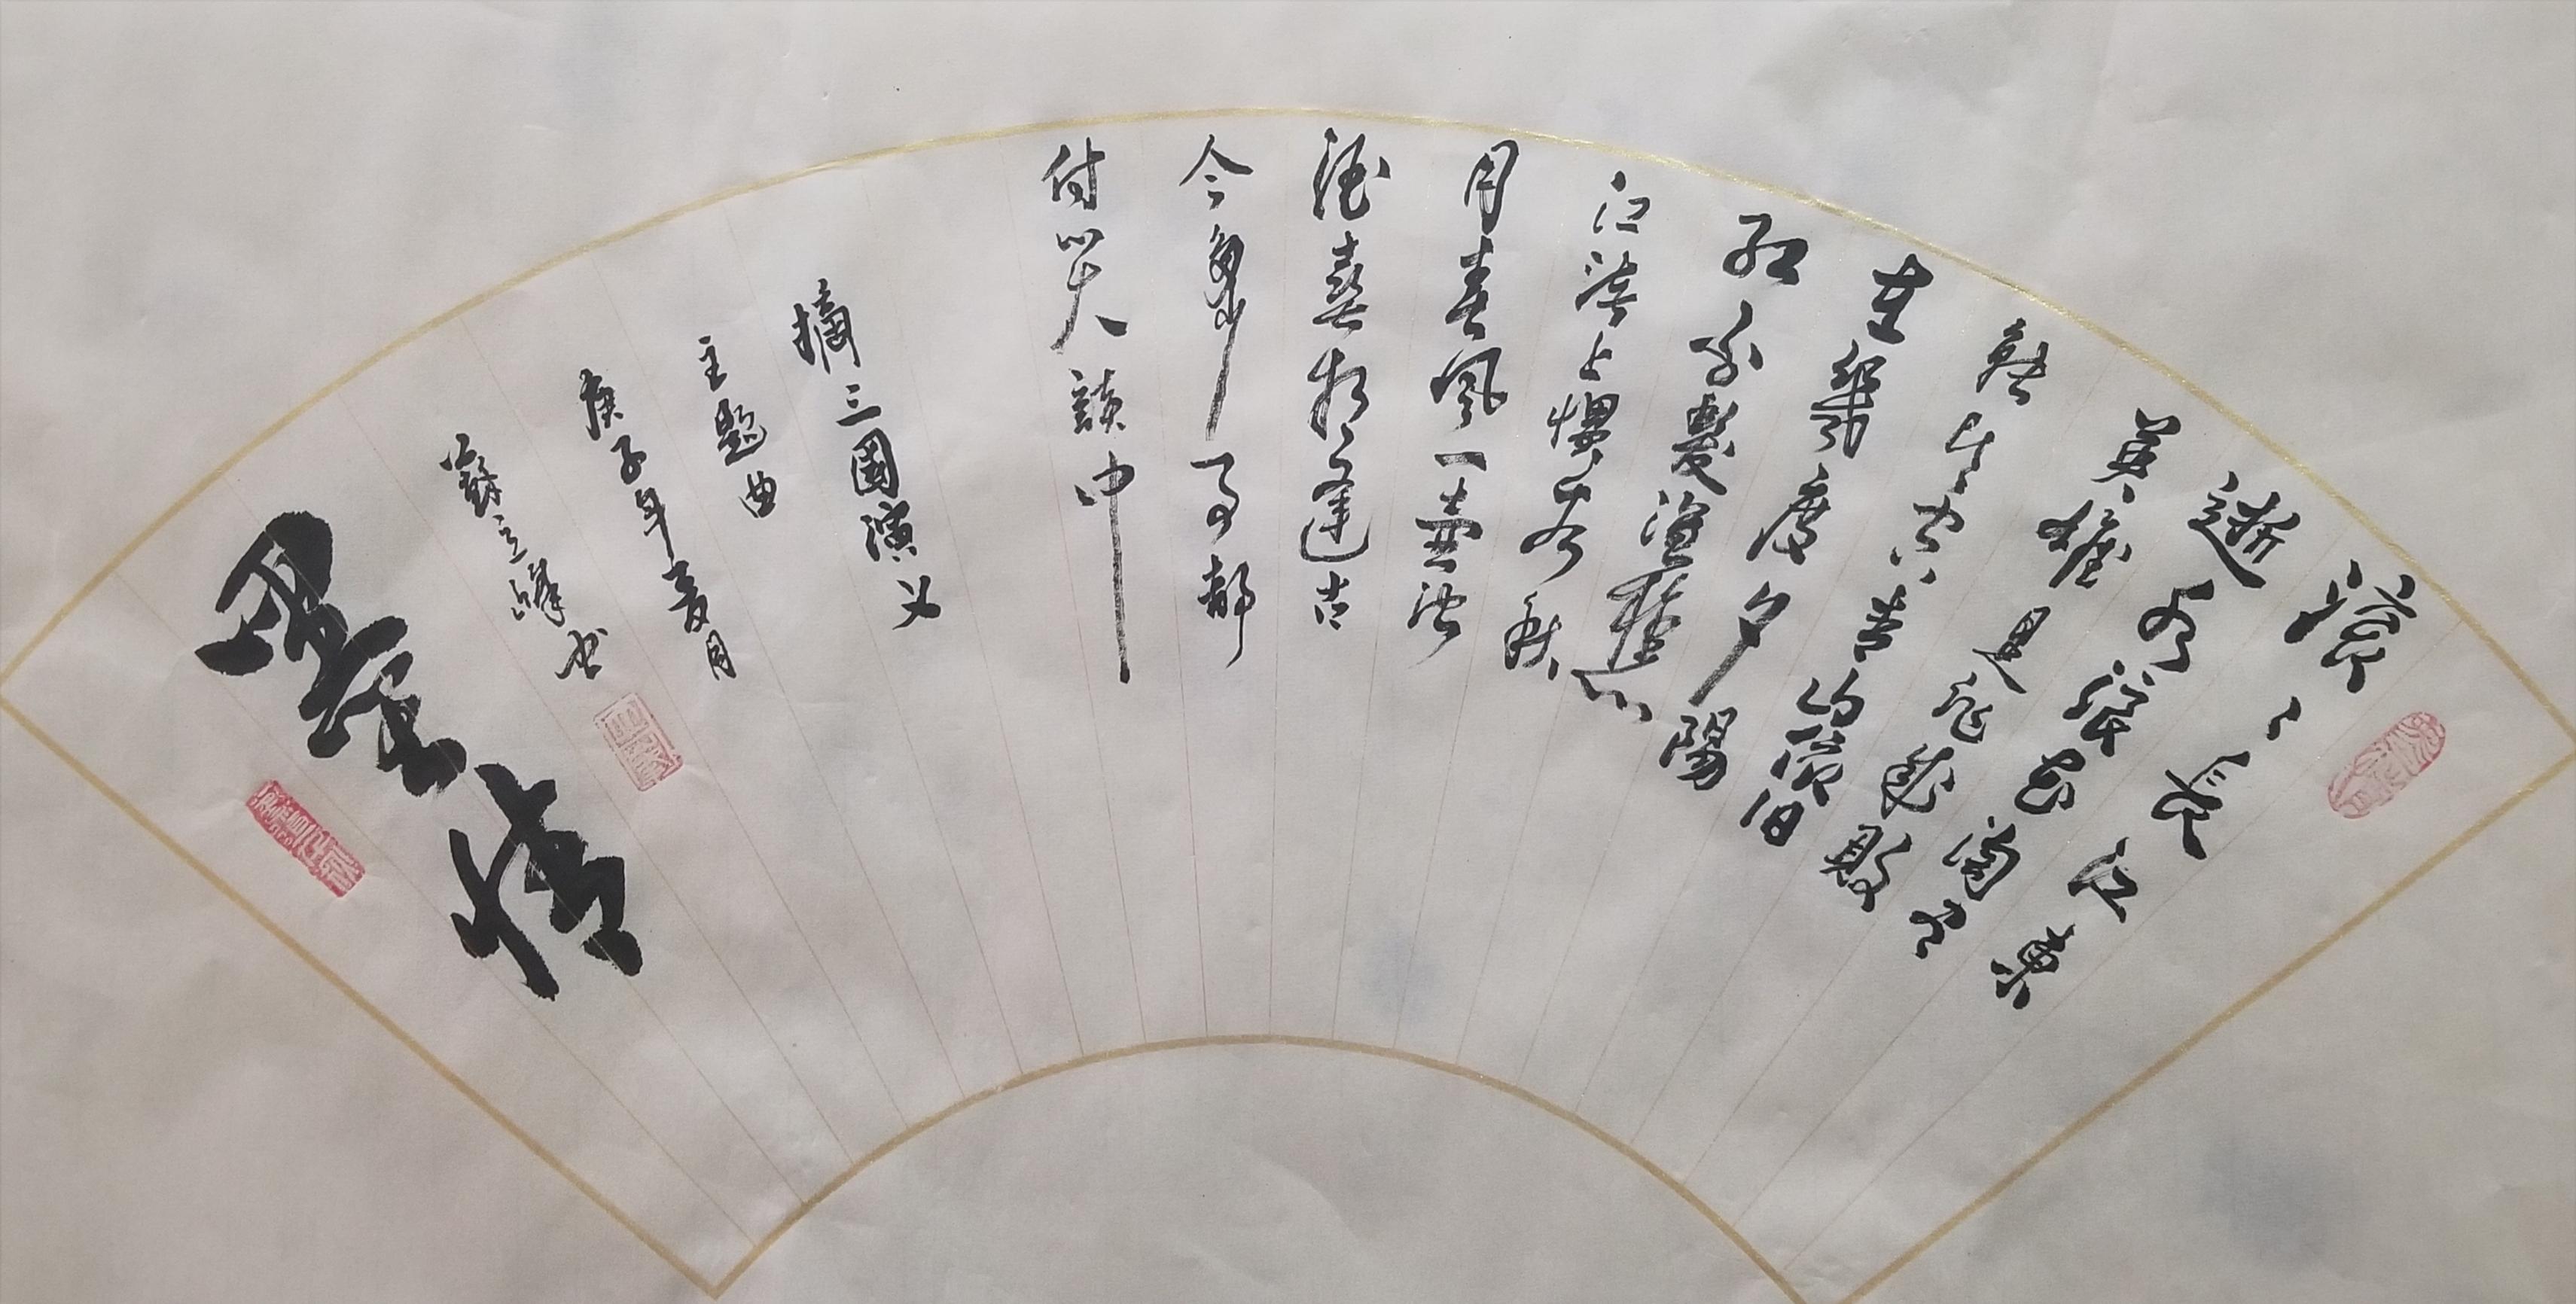 滚〻長江東
逝水浪花淘尽
英雄是非成敗
转头空青山依旧
在幾度夕陽
红白髮渔樵
江渚上惯看秋
月春风一壶浊
酒喜相逢古
今多少事都
付笑談中
摘三國演义
主题曲
庚子年夏月
蘇立峰书
墨情